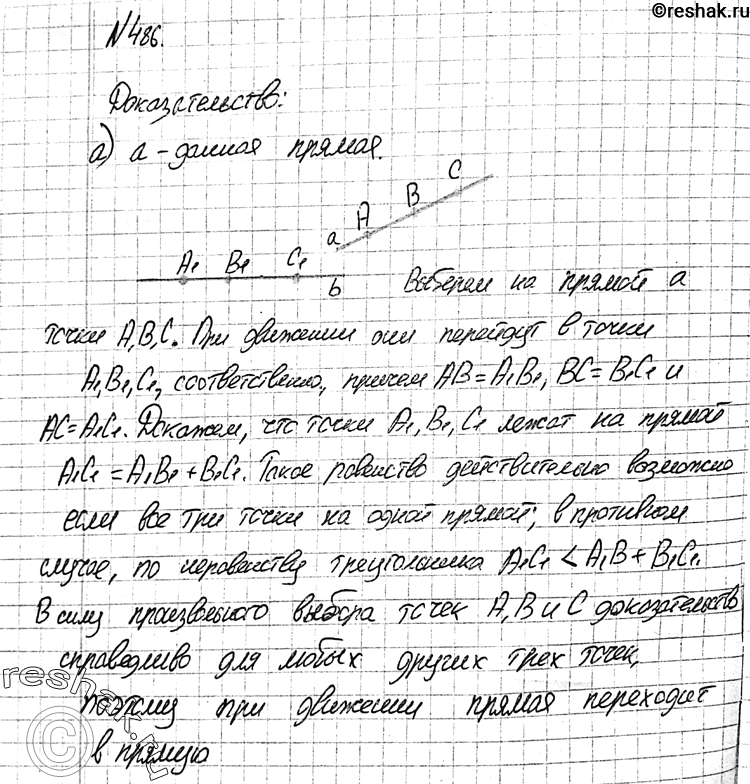 ©reshak.ru
№486.
Доказательство:
а) а - данная прямая.
C
B
A
a
A₁ B₁ C₁
b
Выберем на прямой а
точки А,В,С. При движении они перейдут в точки
А₁,В₁,С₁, соответственно, причем АВ=А₁В₁, ВС=В₁С₁ и
АС=А₁С₁. Докажем, что точки А₁,В₁,С₁ лежат на прямой
А₁С₁=А₁В₁+В₁С₁. Такое равенство действительно возможно
если все три точки на одной прямой, в противном
случае, по неравенству треугольника А₁С₁<А₁В+В₁С₁.
В силу произвольного выбора точек А,В и С доказательств
справедливо для любых других трех точек,
поэтому при движении прямая переходит
в прямую
© reshak.ru